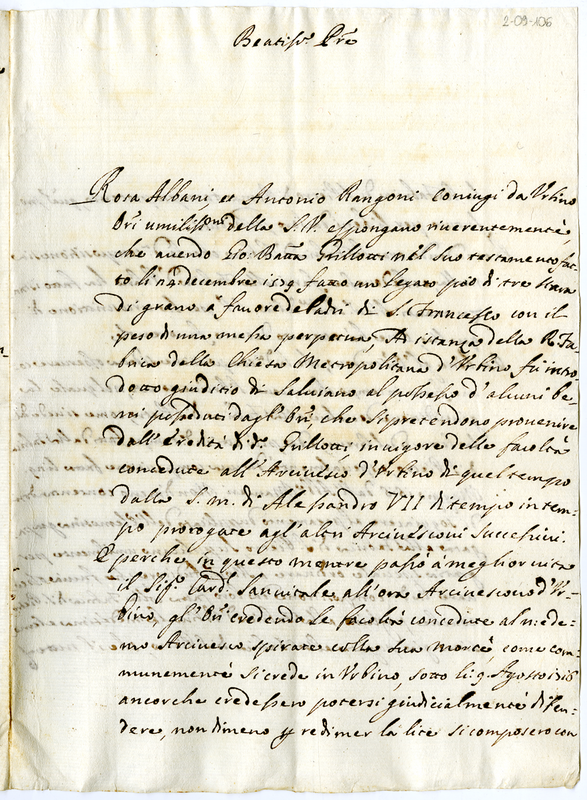 2-09-106
Beatiss.o Pre
Rosa Albani et Antonio Rangoni Coniugi da Urbino
Ori umiliss.mi della S.V. espongano riverentemente,
che avendo Gio: Batta Grillotti nel suo testamento fat-
to li 14 decembre 1579 fatto un legato pio di tre stara
di grano à favore de Padri di S. Francesco con il
peso di una messa perpetua, Ad istanza della R. Fa-
brica della Chiesa Metropolitana d'Urbino, fù intro-
dotto giuditio di Salviano al possesso d'alcuni be-
ni posseduti dagl'Ori, che si pretendono provenire
dall'Eredità di d.o Grillotti in vigore delle facoltà
concedute all'Arcivesco d'Urbino di quel tempo
dalla S. m. di Alessandro VII di tempo in tem-
po prorogate agl'altri Arcivesconi Successivi.
E perche in questo mentre passò à meglior vita
il Sig.r Card. Sanvitale all'ora Arcivescovo d'Ur-
bino, gl'Ori credendo le facoltà concedute al mede-
mo Arcivesco spirate colla sua morte, come com-
munemente si crede in Urbino, sotto li 9 Agosto 1716
ancorche credessero potersi giudicialmente difen-
dere, non dimeno p redimer la lite si composero con